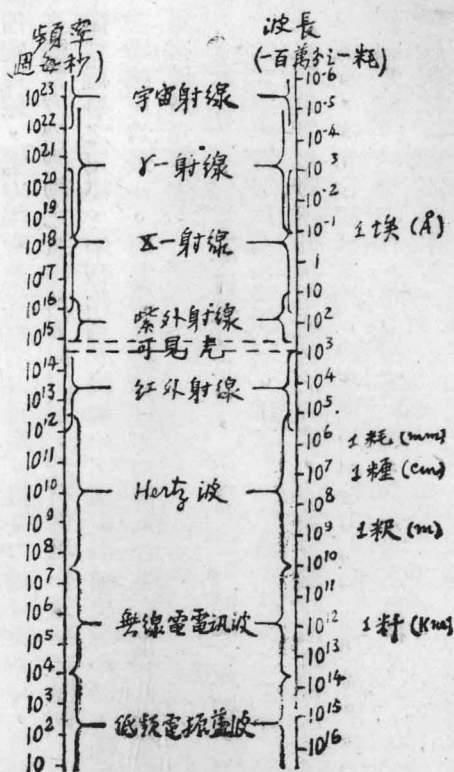 頻率
週每秒)
波長
(一百萬分之一粍)
10²³
10²²
10²¹
10²⁰
10¹⁹
10¹⁸
10¹⁷
10¹⁶
10¹⁵
10¹⁴
10¹³
10¹²
10¹¹
10¹⁰
10⁹
10⁸
10⁷
10⁶
10⁵
10⁴
10³
10²
10
宇宙射線
γ-射線
X-射線
紫外射線
可見光
紅外射線
Hertz 波
無線電電訊波
低頻電振盪波
10⁻⁶
10⁻⁵
10⁻⁴
10⁻³
10⁻²
10⁻¹
1
10
10²
10³
10⁴
10⁵
10⁶
10⁷
10⁸
10⁹
10¹⁰
10¹¹
10¹²
10¹³
10¹⁴
10¹⁵
10¹⁶
1埃 (Å)
1粍 (mm)
1糎 (cm)
1粎 (m)
1粁 (Km)